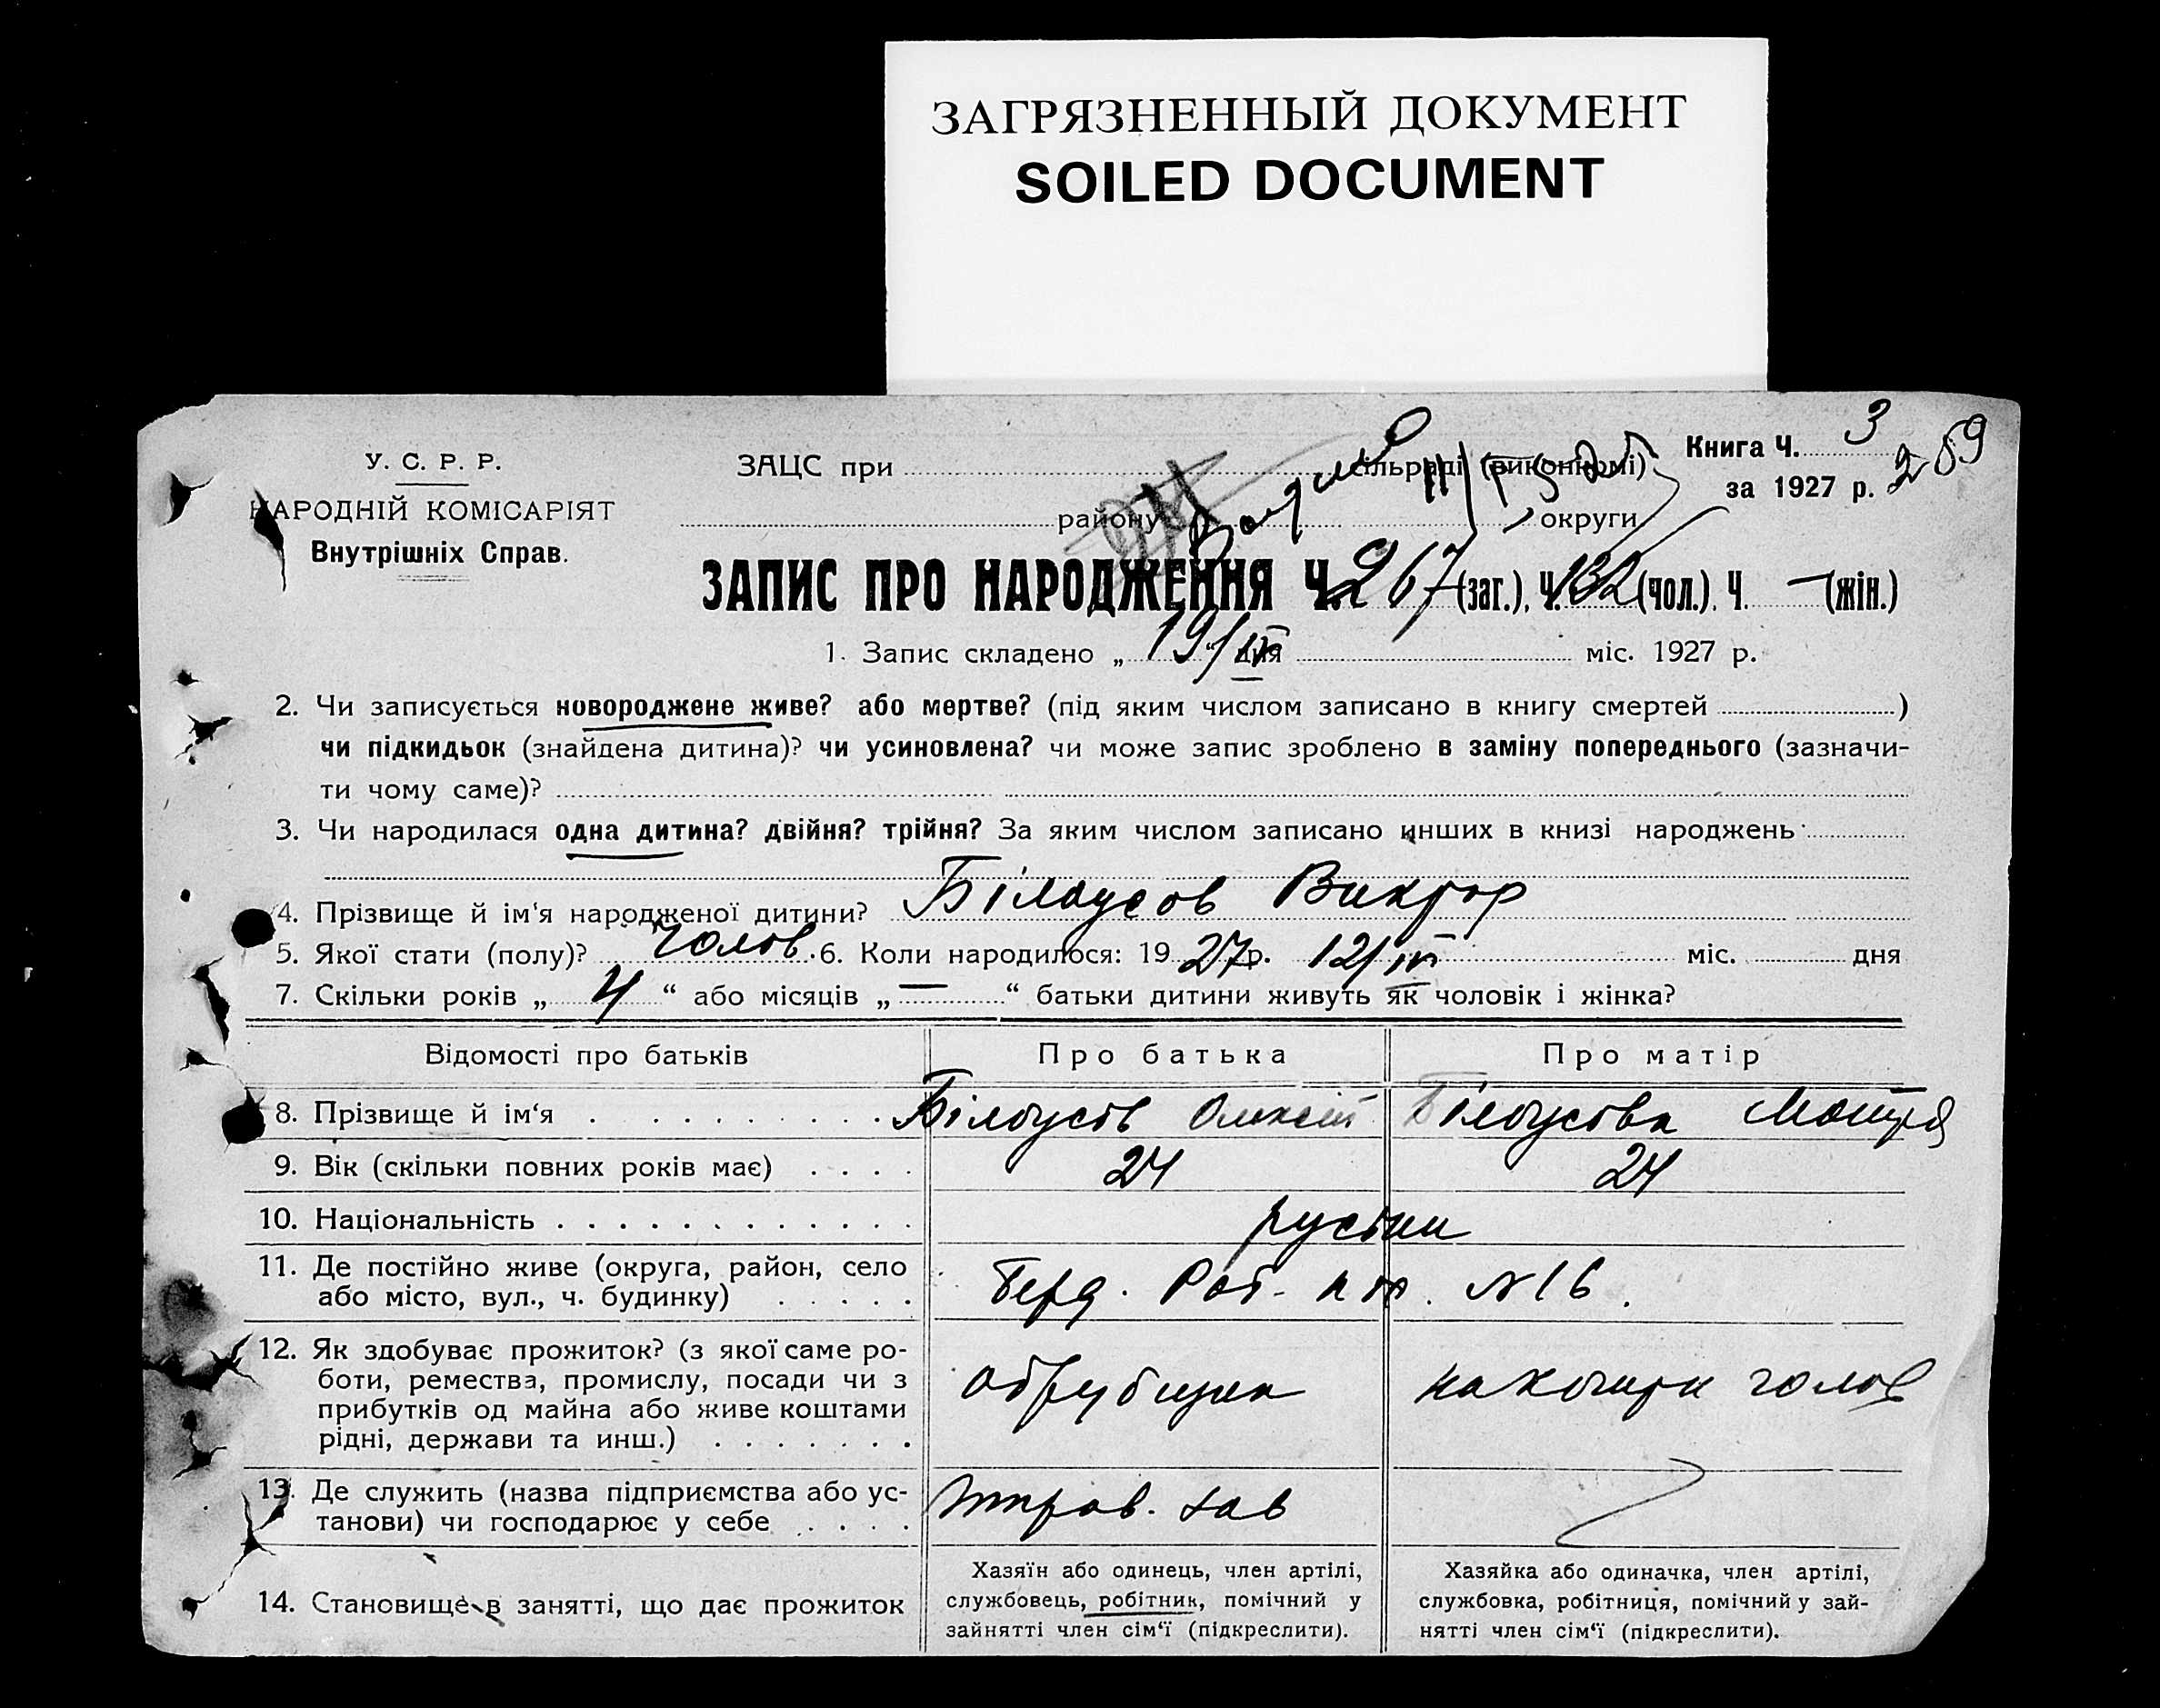 ЗАГРЯЗНЕННЫЙ ДОКУМЕНТ
SOILED DOCUMENT
У. С. Р. Р.
НАРОДНІЙ КОМІСАРІЯТ
Внутрішніх Справ.
ЗАЦС при сільраді (виконкомі)
району округи
Книга Ч. 3
за 1927 р. 259
ЗАПИС ПРО НАРОДЖЕННЯ Ч. 267 (заг.), Ч. 132 (чол.). Ч. — (жін.)
1. Запис складено „ 19/IV “ дня міс. 1927 р.
2. Чи записується новороджене живе? або мертве? (під яким числом записано в книгу смертей )
чи підкидьок (знайдена дитина)? чи усиновлена? чи може запис зроблено в заміну попереднього (зазначи-
ти чому саме)?
3. Чи народилася одна дитина? двійня? трійня? За яким числом записано инших в книзі народжень
4. Прізвище й ім'я народженої дитини? Білоусов Виктор
5. Якої стати (полу)? Чолов. 6. Коли народилося: 1927 р. 12/IV міс. дня
7. Скільки років „ 4 “ або місяців „ — “ батьки дитини живуть як чоловік і жінка?
Відомості про батьків Про батька Про матір
8. Прізвище й ім'я Білоусов Олексій Білоусова Мотря
9. Вік (скільки повних років має) 24 24
10. Національність
11. Де постійно живе (округа, район, село
або місто, вул., ч. будинку) №16.
12. Як здобуває прожиток? (з якої саме ро-
боти, ремества, промислу, посади чи з
прибутків од майна або живе коштами
рідні, держави та инш.) обрубщик на кошти голов
13. Де служить (назва підприємства або ус-
танови) чи господарює у себе
14. Становище в занятті, що дає прожиток
Хазяїн або одинець, член артілі,
службовець, робітник, помічний у
зайнятті член сім'ї (підкреслити).
Хазяйка або одиначка, член артілі,
службовка, робітниця, помічний у зай-
нятті член сім'ї (підкреслити).